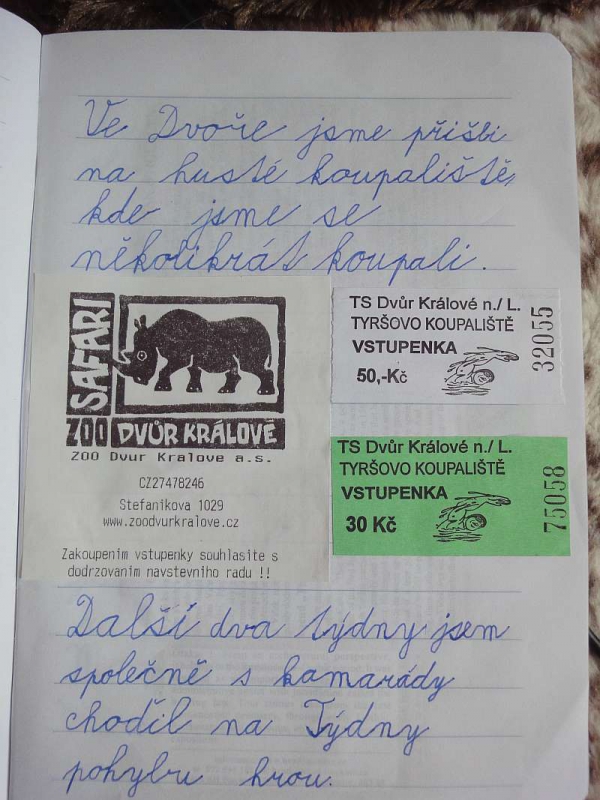 Ve Dvoře jsme přišli
na husté koupaliště,
kde jsme se
několikrát koupali.
SAFARI
ZOO DVŮR KRÁLOVÉ
ZOO Dvur Kralove a.s.
CZ27478246
Stefanikova 1029
www.zoodvurkralove.cz
Zakoupenim vstupenky souhlasite s
dodrzovanim navstevniho radu !!
TS Dvůr Králové n./ L.
TYRŠOVO KOUPALIŠTĚ
VSTUPENKA
50,-Kč
32055
TS Dvůr Králové n./ L.
TYRŠOVO KOUPALIŠTĚ
VSTUPENKA
30 Kč
75058
Další dva týdny jsem
společně s kamarády
chodil na Týdny
pohybu hrou.